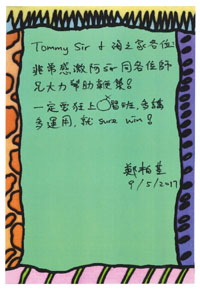 Tommy Sir & 海之家各位:
非常感激阿sir同各位師
兄大力幫助鞭策!
一定要狂上O習班,多講
多運用,就sure win!
鄭柏
9/5/2017